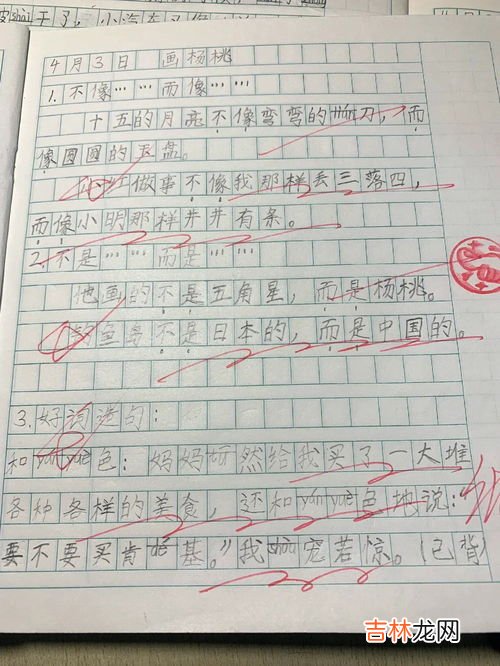 4月3日 画杨桃
1.不像……而像……
十五的月亮不像弯弯的镰刀,而
像圆圆的玉盘。
做事不像我那样丢三落四,
而像小明那样井井有条。
2.不是……而是……
他画的不是五角星,而是杨桃。
钓鱼岛不是日本的,而是中国的。
3.好词造句:
和yán yuè色:妈妈竟然给我买了一大堆
各种各样的美食,还和yán yuè色地说:
要不要买肯dé基。”我shòu宠若惊。(已背
吉林龙网